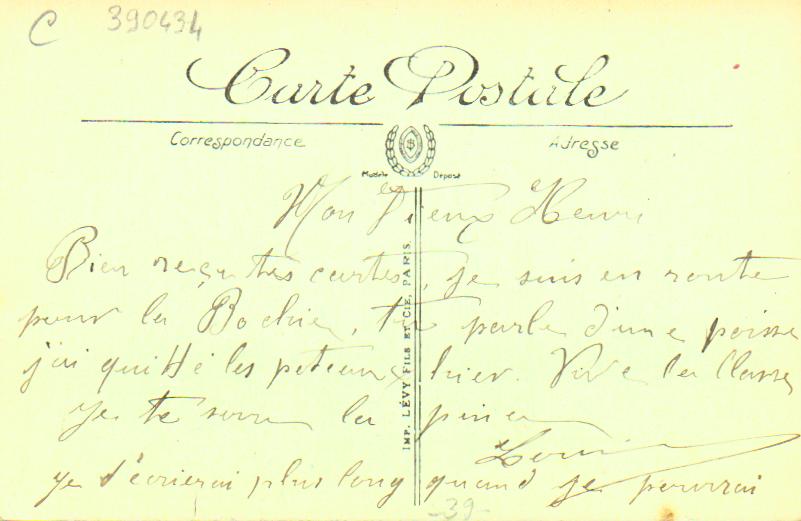 C 390434
Carte Postale
Correspondance
Adresse
Modèle Déposé
IMP. LÉVY FILS ET CIE, PARIS.
Mon Vieux Henri
Bien reçu tes cartes, je suis en route
pour la Bochie, tu parle d'une poisse
j'ai quitté les poteaux hier. Vive la Classe
je te serre la pince
Louis
je t'écrirai plus long quand je pourrai
-39-